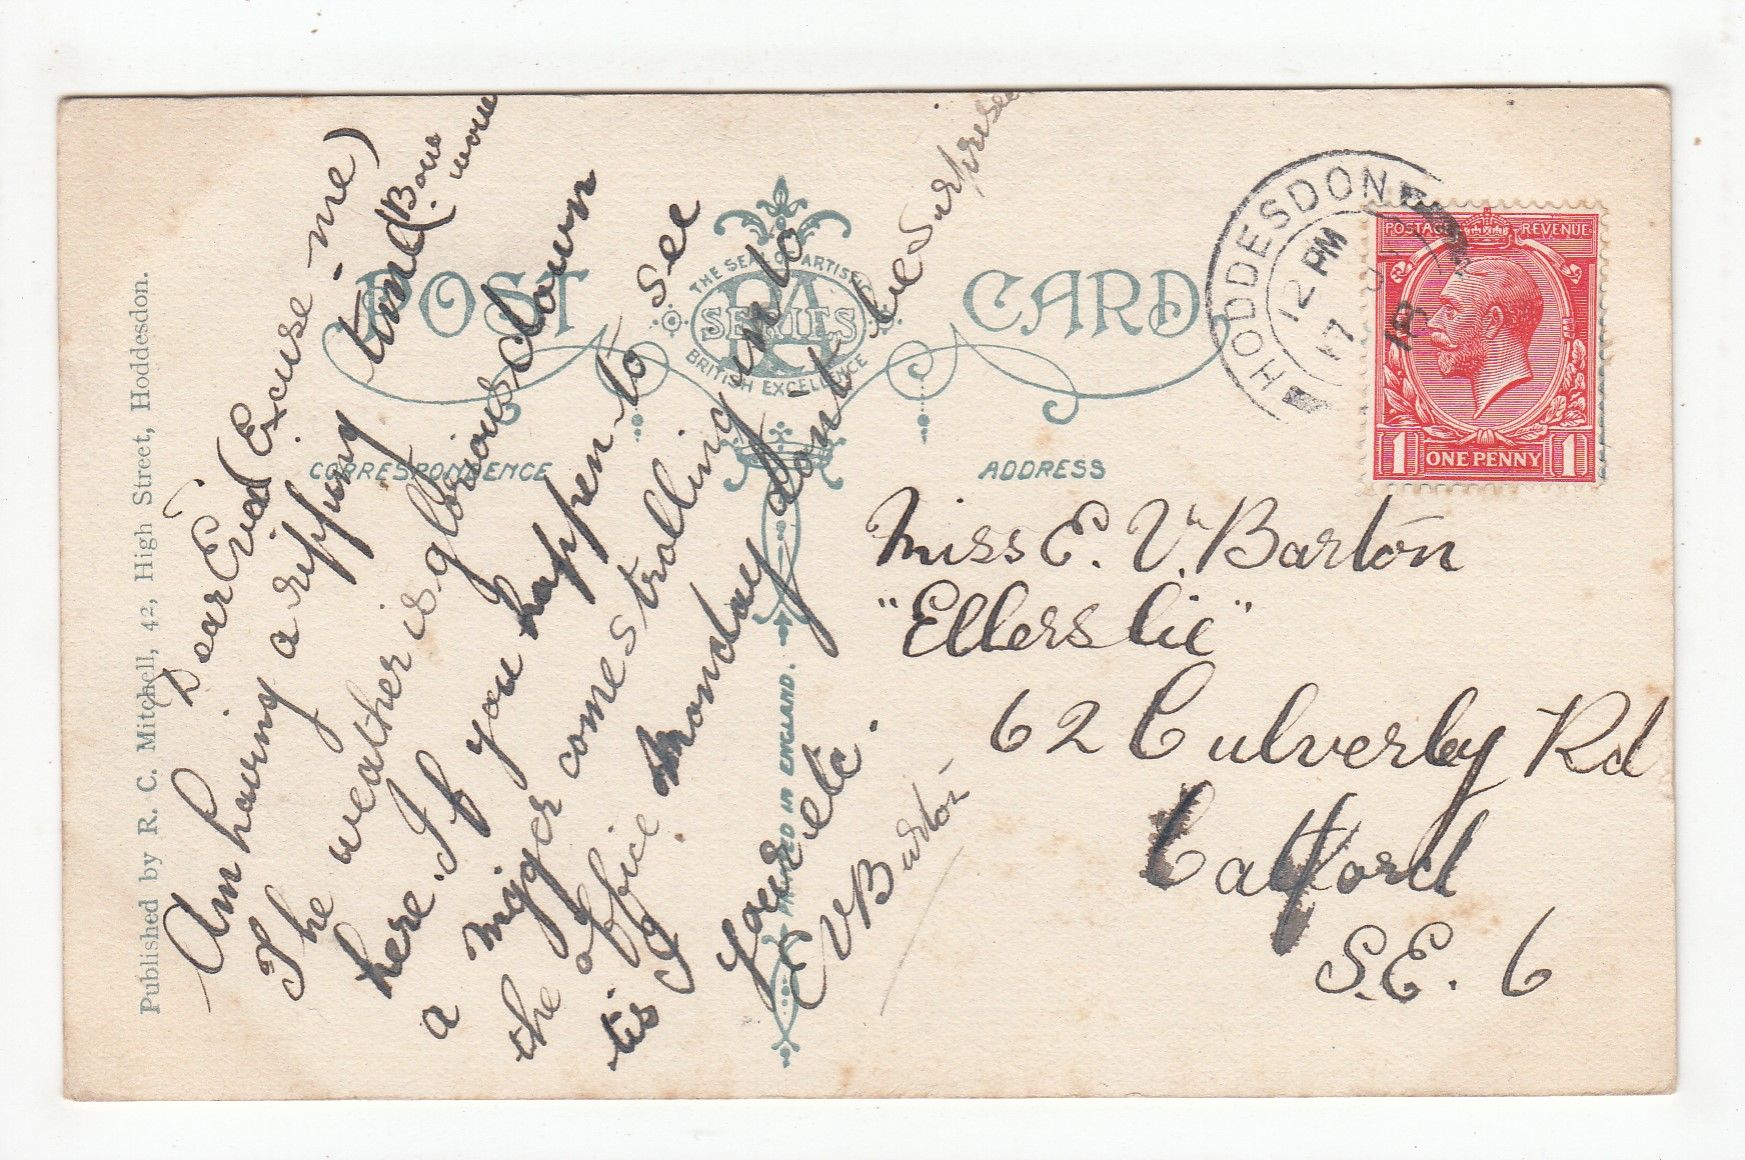 Published by R. C. Mitchell, 42, High Street, Hoddesdon.
POST CARD
THE SEAL OF ARTISTIC
RA
SERIES
BRITISH EXCELLENCE
CORRESPONDENCE
ADDRESS
PRINTED IN ENGLAND.
Dear Enid (Excuse-me)
Am having a ripping time (Bow wow
The weather is glorious down
here. If you happen to see
a nigger come strolling into
the office Monday dont be Surprised
tis I.
Yours etc.
EVBarton
HODDESDON
12 PM
17
18
POSTAGE REVENUE
1 ONE PENNY 1
Miss E. V. Barton
"Ellerslie"
62 Culverley Rd
Catford
S.E. 6